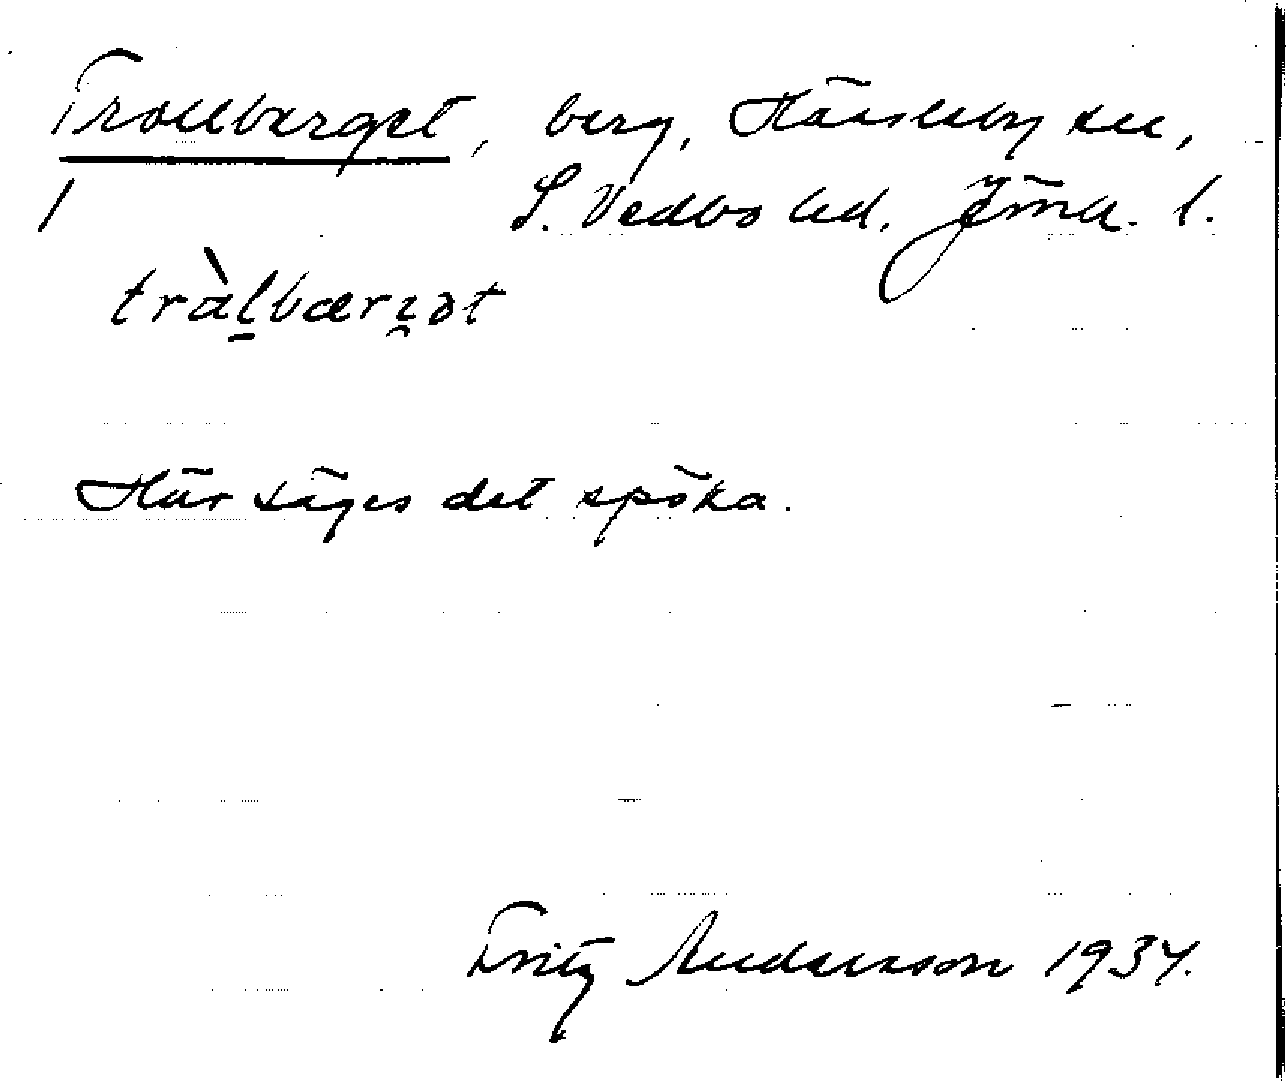 Trollberget, berg, Hässleby sn,
S. Vedbo hd, Jönk. l.
/
tràl̠bærɪ̯ət
Här säges det spöka.
Fritz Andersson 1934.